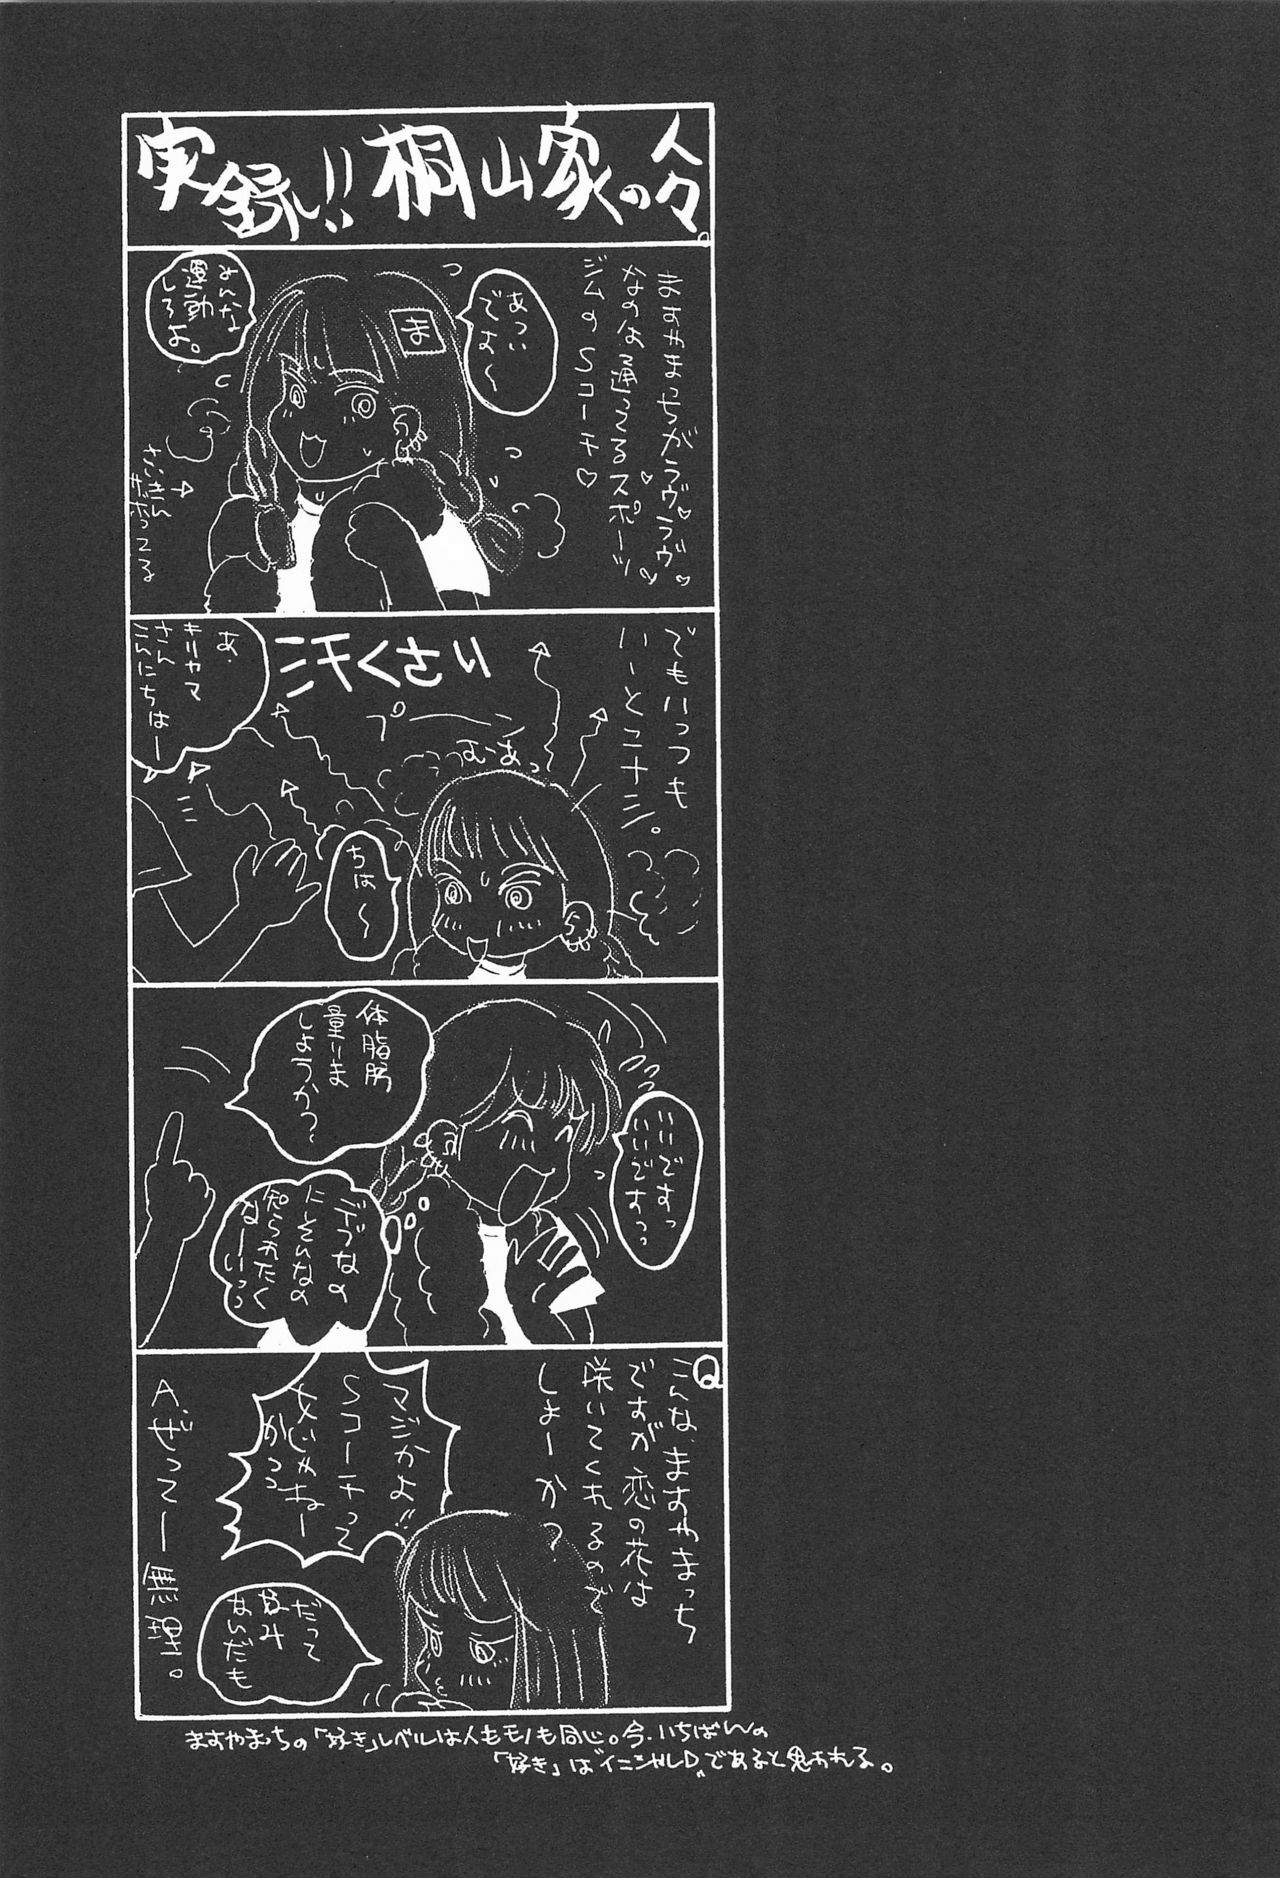 実録!!桐山家の人々。
ますやまっちがラヴ♡ラヴ♡
なのは通ってるスポーツ
ジムのSコーチ♡
あつい
ですよ〜
ま
みんな
運動
しろよ。
さいきん
サボってる
でもいっつも
いーとこナシ。
汗くさい
プーン
むーあっ
ちは〜
あ.
キリヤマ
さん
こんにちはー
いいですっ
いいですっっ
体脂肪
量りま
しょうか?
デブなの
にーそんなの
知られたく
なーいっっ
Q
こんな.ますやまっち
ですが恋の花は
咲いてくれるので
しょーか?
マジかよ!!
Sコーチって
かっっ
だって
好み
なんだも
A.ぜってー無理。
ますやまっちの「好き」レベルは人もモノも同じ。今.いちばんの
「好き」は"イニシャルD"であると思われる。